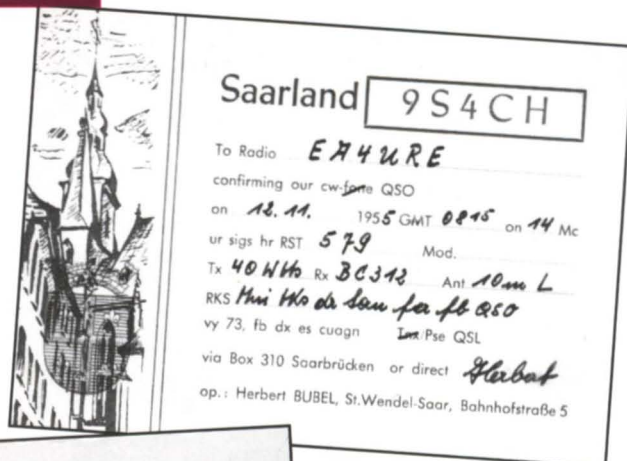 Saarland 9S4CH
To Radio EA4URE
confirming our cw-fone QSO
on 12.11. 1955 GMT 0815 on 14 Mc
ur sigs hr RST 579 Mod.
Tx 40 Wtts Rx BC312 Ant 10m L
RKS Mni tks dr San fer fb QSO
vy 73, fb dx es cuagn Tnx Pse QSL
via Box 310 Saarbrücken or direct Herbert
op.: Herbert BUBEL, St.Wendel-Saar, Bahnhofstraße 5